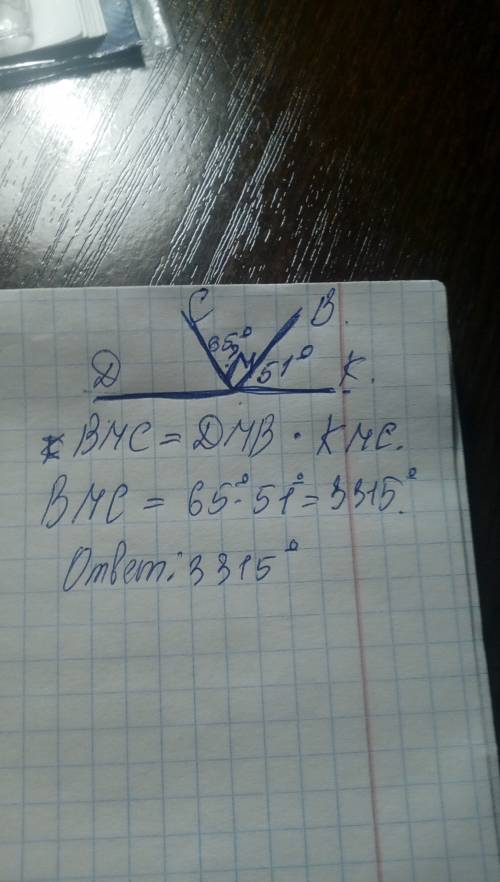 C B.
65°
D M 51° K.
∠BMC = DMB · KMC.
BMC = 65° · 51° = 3315°.
Ответ: 3315°